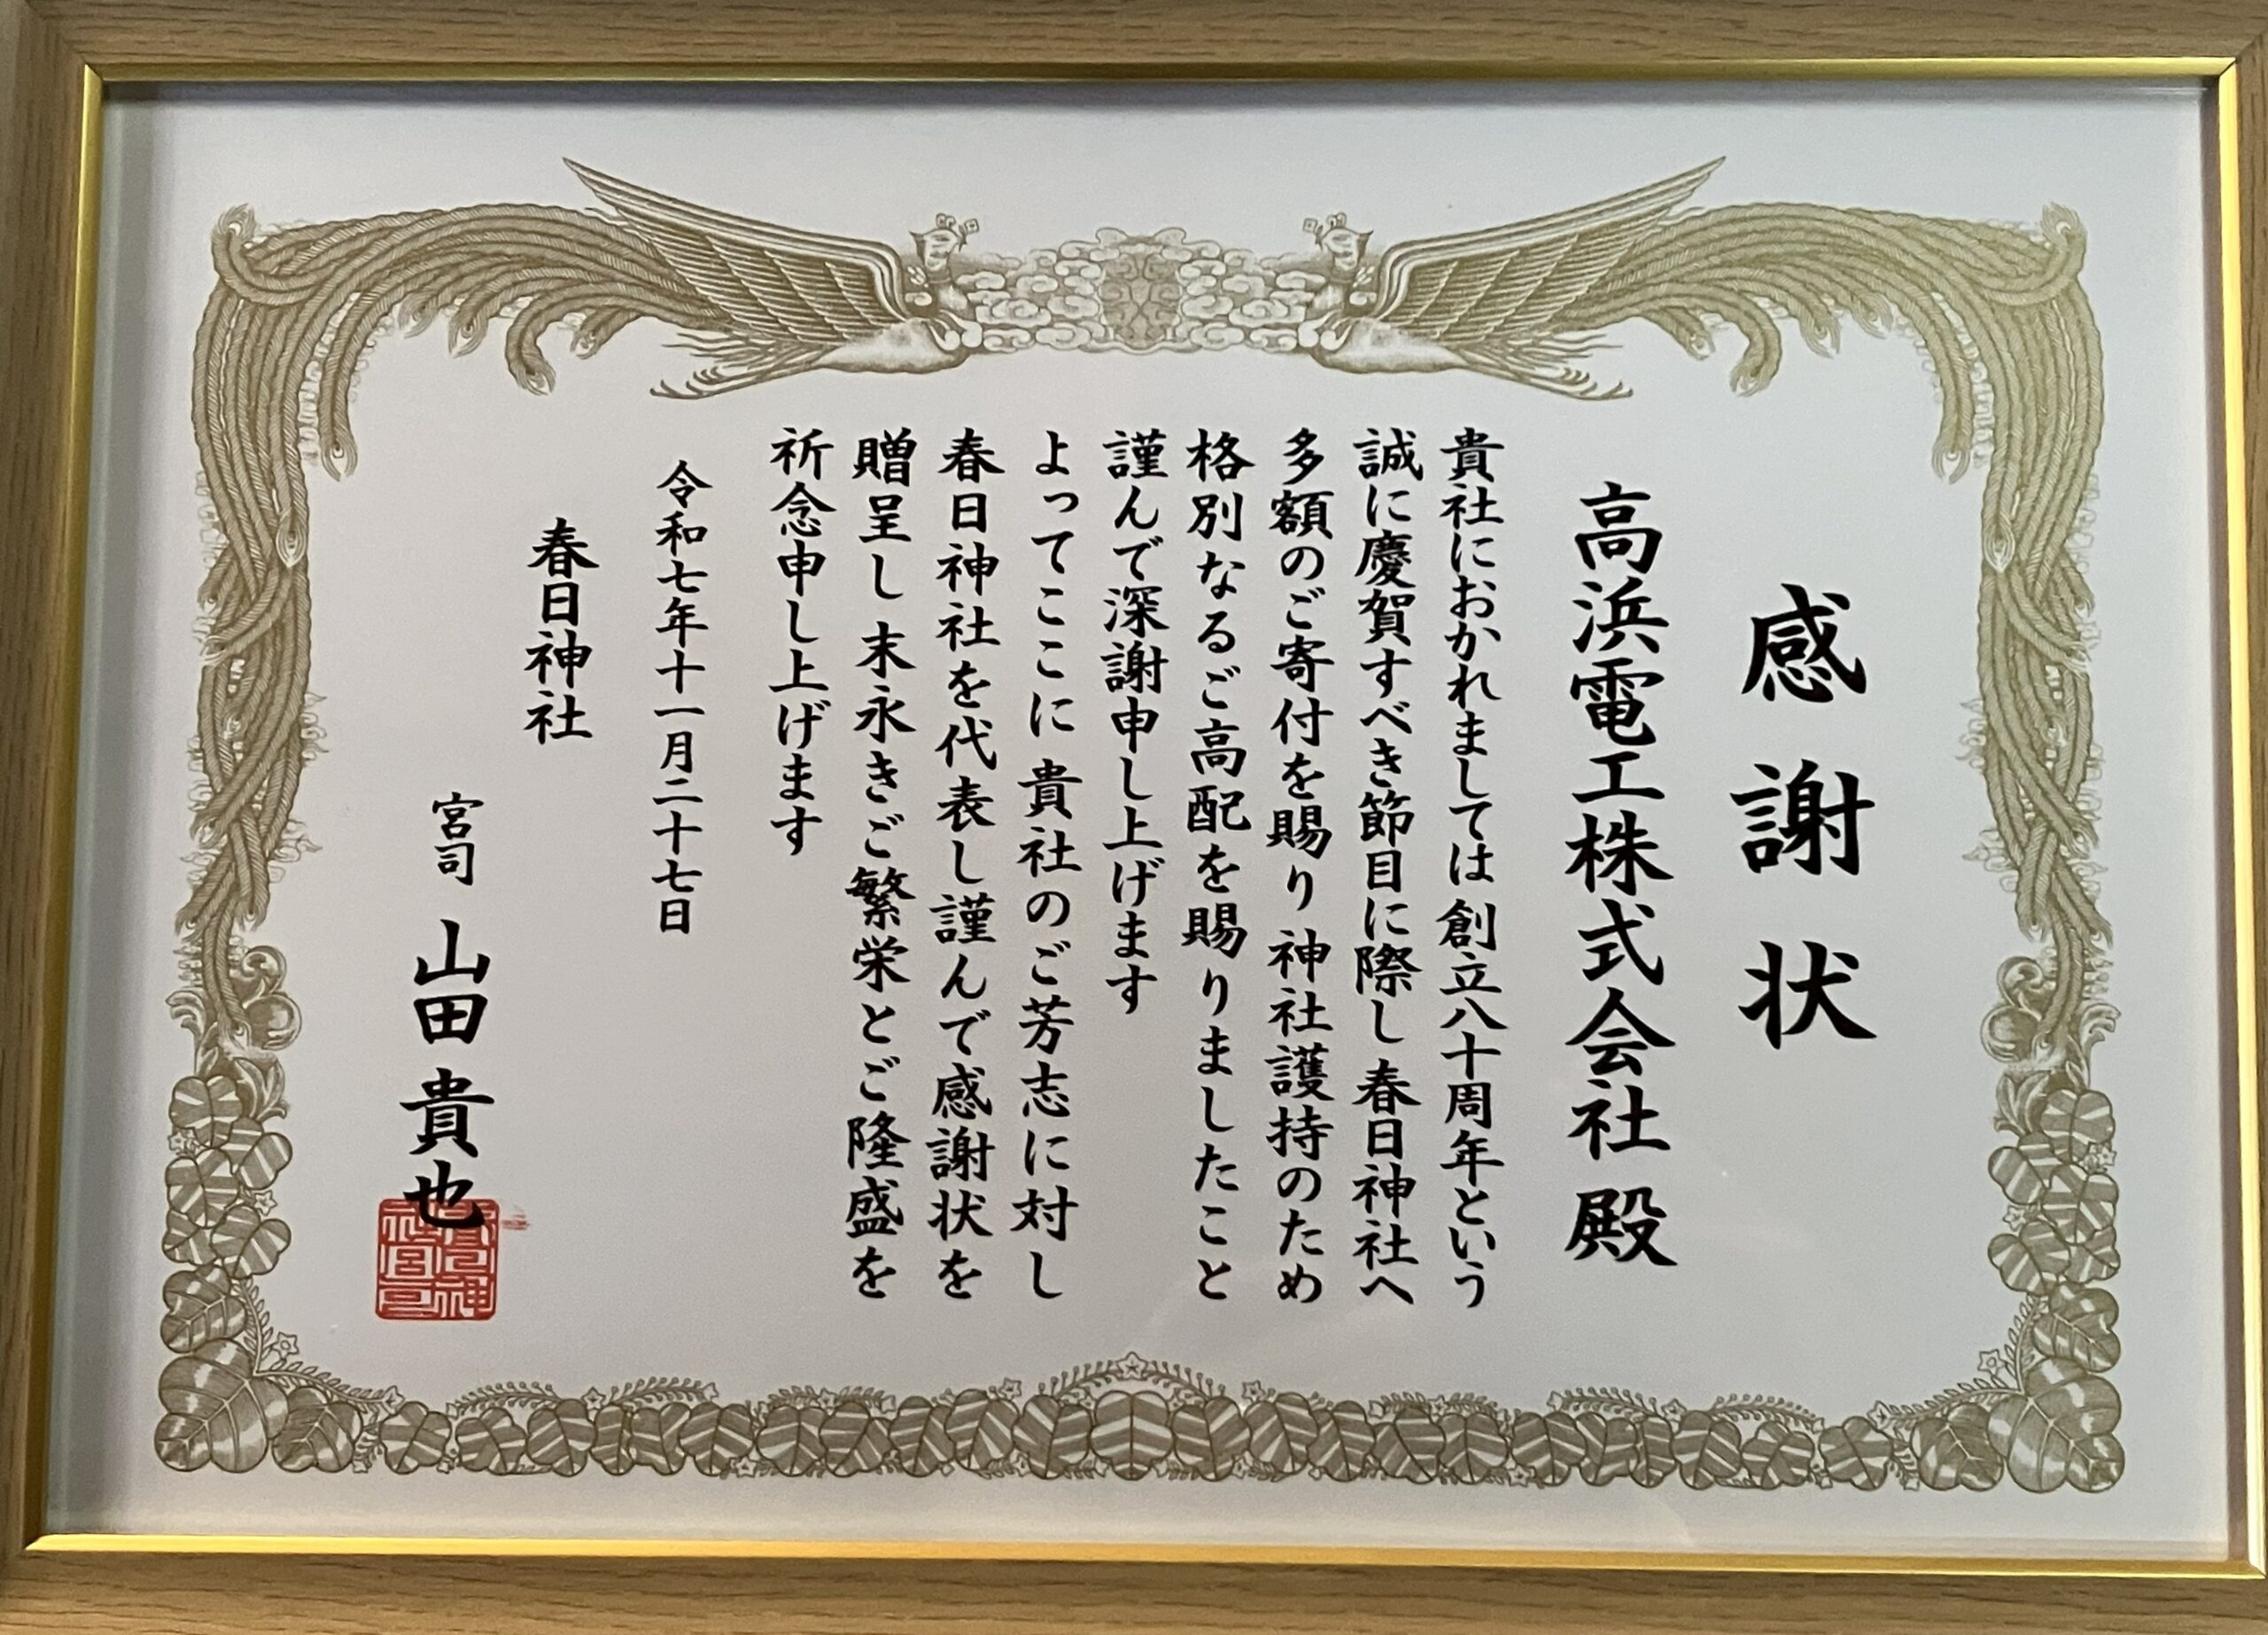 感謝状
高浜電工株式会社 殿
貴社におかれましては 創立八十周年という
誠に慶賀すべき節目に際し 春日神社へ
多額のご寄付を賜り 神社護持のため
格別なるご高配を賜りましたこと
謹んで深謝申し上げます
よってここに 貴社のご芳志に対し
春日神社を代表し謹んで感謝状を
贈呈し 末永きご繁栄とご隆盛を
祈念申し上げます
令和七年十一月二十七日
春日神社
宮司 山田 貴也